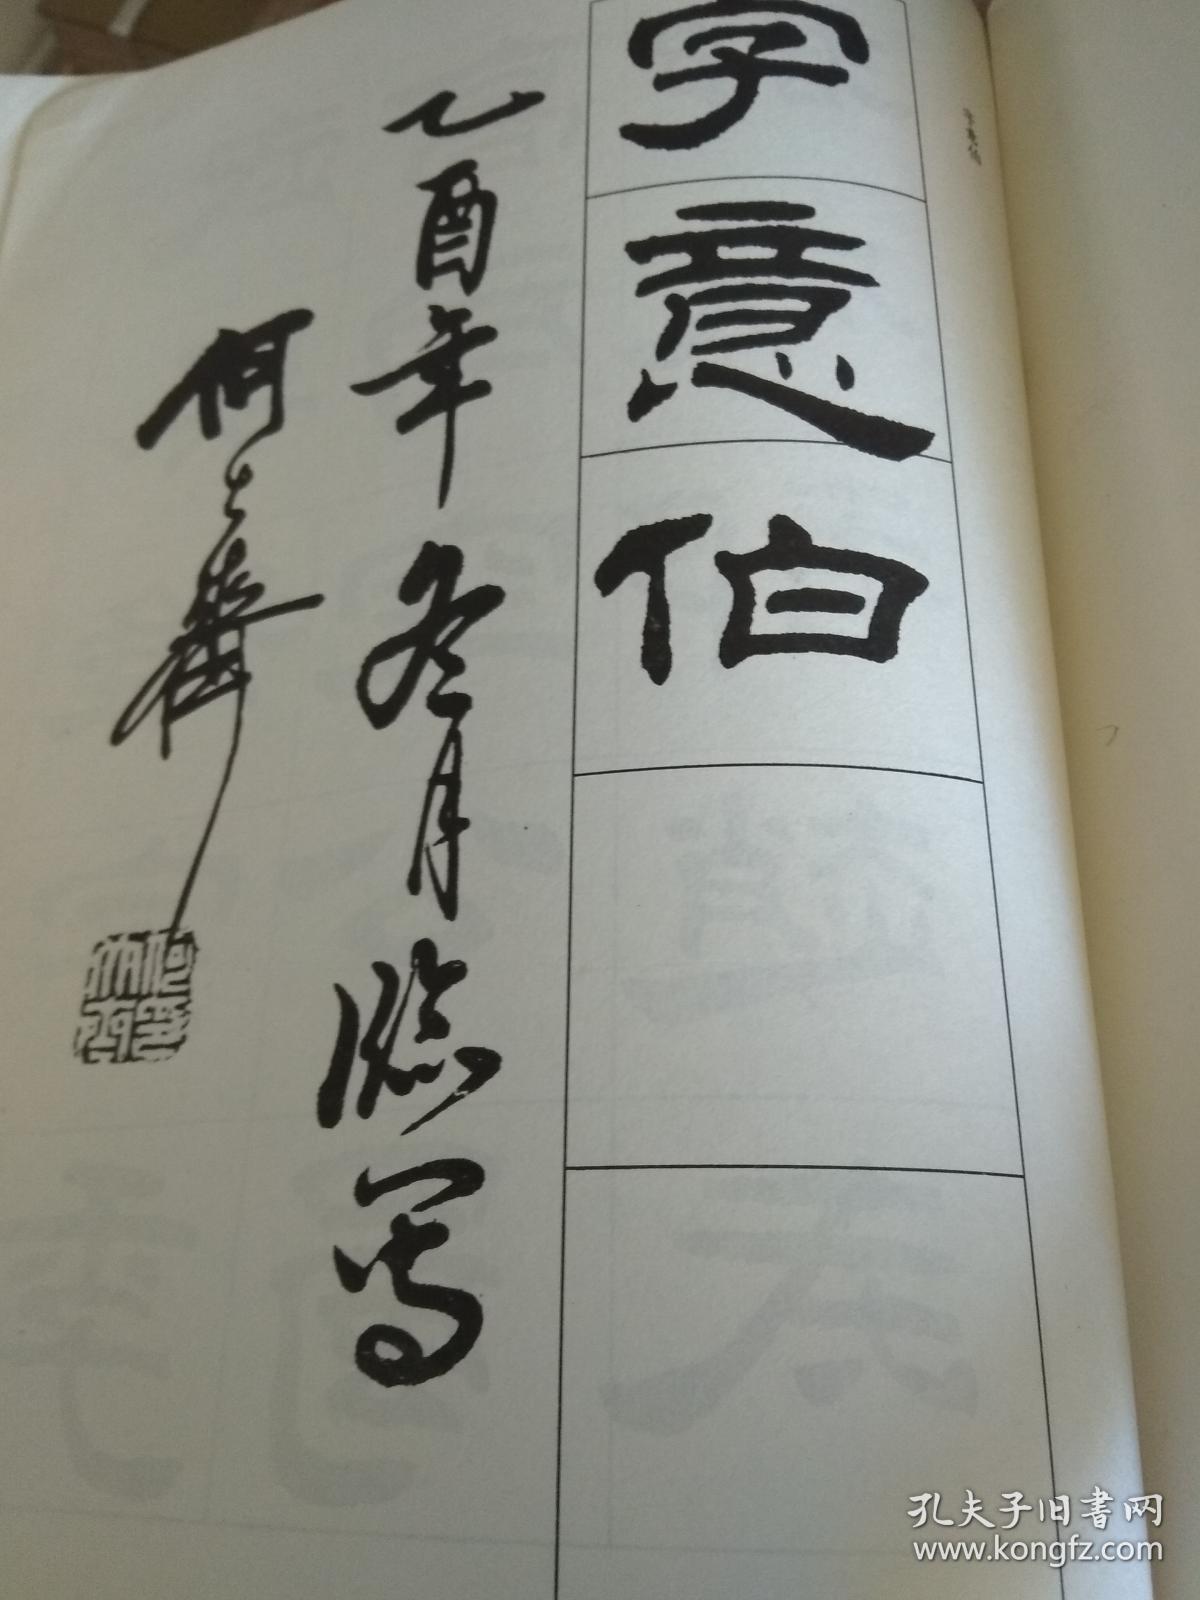 字意伯
乙酉年冬月臨寫
何
孔夫子旧书网
www.kongfz.com